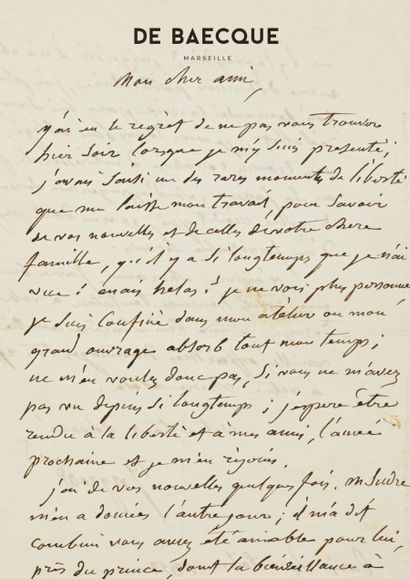 DE BAECQUE
MARSEILLE
Mon cher ami,
j'ai eu le regret de ne pas vous trouver
hier soir lorsque je m'y suis presenté;
j'avais saisi un des rares moments de liberté
que me laisse mon travail, pour savoir
de vos nouvelles et de celles de votre chere
famille, qu'il y a si longtemps que je n'ai
vue! mais helas! je ne vois plus personne,
je suis confiné dans mon atelier ou mon
grand ouvrage absorb tout mon temps;
ne m'en voulez donc pas, si vous ne m'avez
pas vu depuis si longtemps; j'espere être
rendu à la liberté et à mes amis, l'année
prochaine et je m'en rejouis.
j'ai de vos nouvelles quelques fois.
m'en a données l'autre jour; il m'a dit
combien vous avez été aimable pour lui,
près du prince, dont la bienveillance à